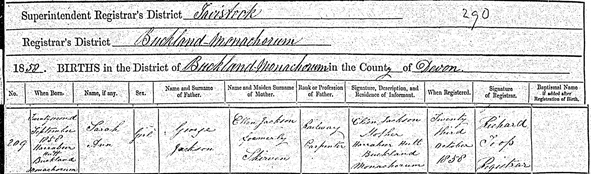 Superintendent Registrar's District Tavistock 290
Registrar's District Buckland Monachorum
1858. BIRTHS in the District of Buckland Monachorum in the County of Devon
No. When Born. Name, if any. Sex. Name and Surname of Father. Name and Maiden Surname of Mother. Rank or Profession of Father. Signature, Description, and Residence of Informant. When Registered. Signature of Registrar. Baptismal Name if added after Registration of Birth.
209 September 1858 Hutt Buckland Monachorum
Sarah Ann
Girl
George Jackson
Ellen Jackson formerly
Railway Carpenter
Ellen Jackson Mother Hutt Buckland Monachorum
Twenty third October 1858
Richard Registrar